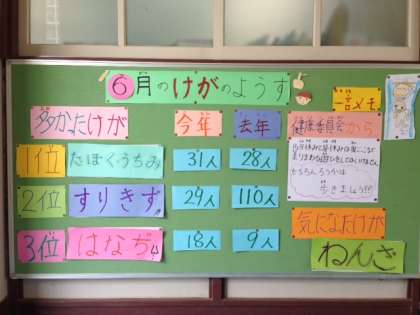 6月のけがのようす
一言メモ
多かったけが
今年
去年
健康委員会から
1位
だぼく・うちみ
31人
28人
2位
すりきず
29人
110人
3位
はなぢ
18人
9人
もちろんろうかは
歩きましょう!!
気になたけが
ねんざ